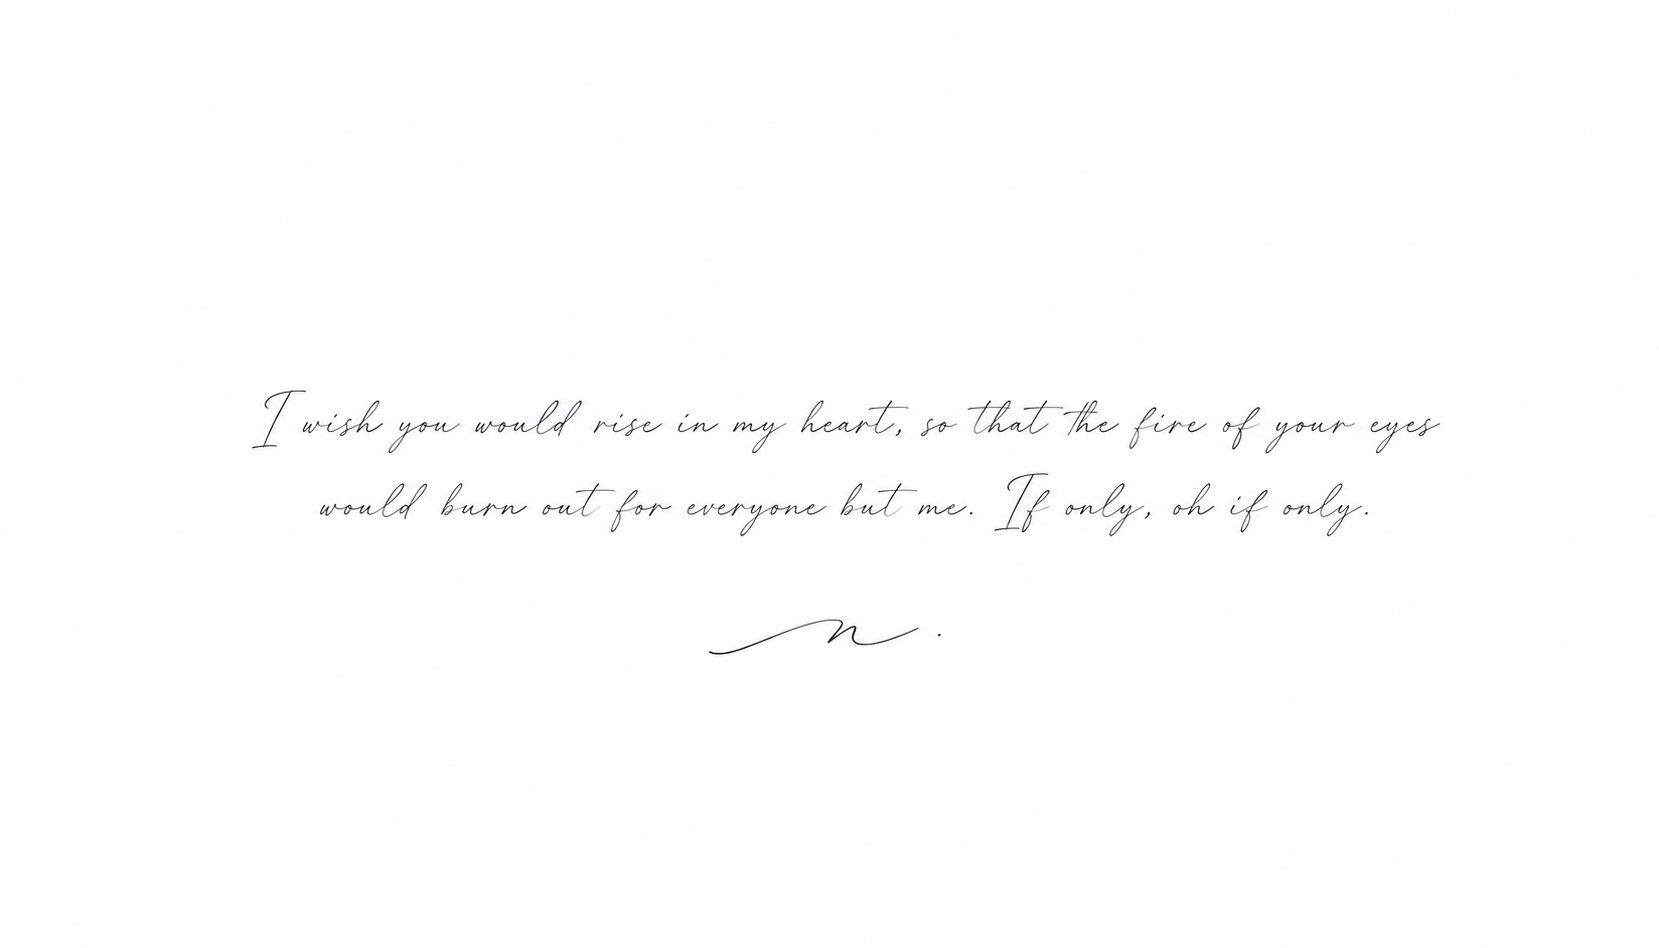 I wish you would rise in my heart, so that the fire of your eyes
would burn out for everyone but me. If only, oh if only.
n.